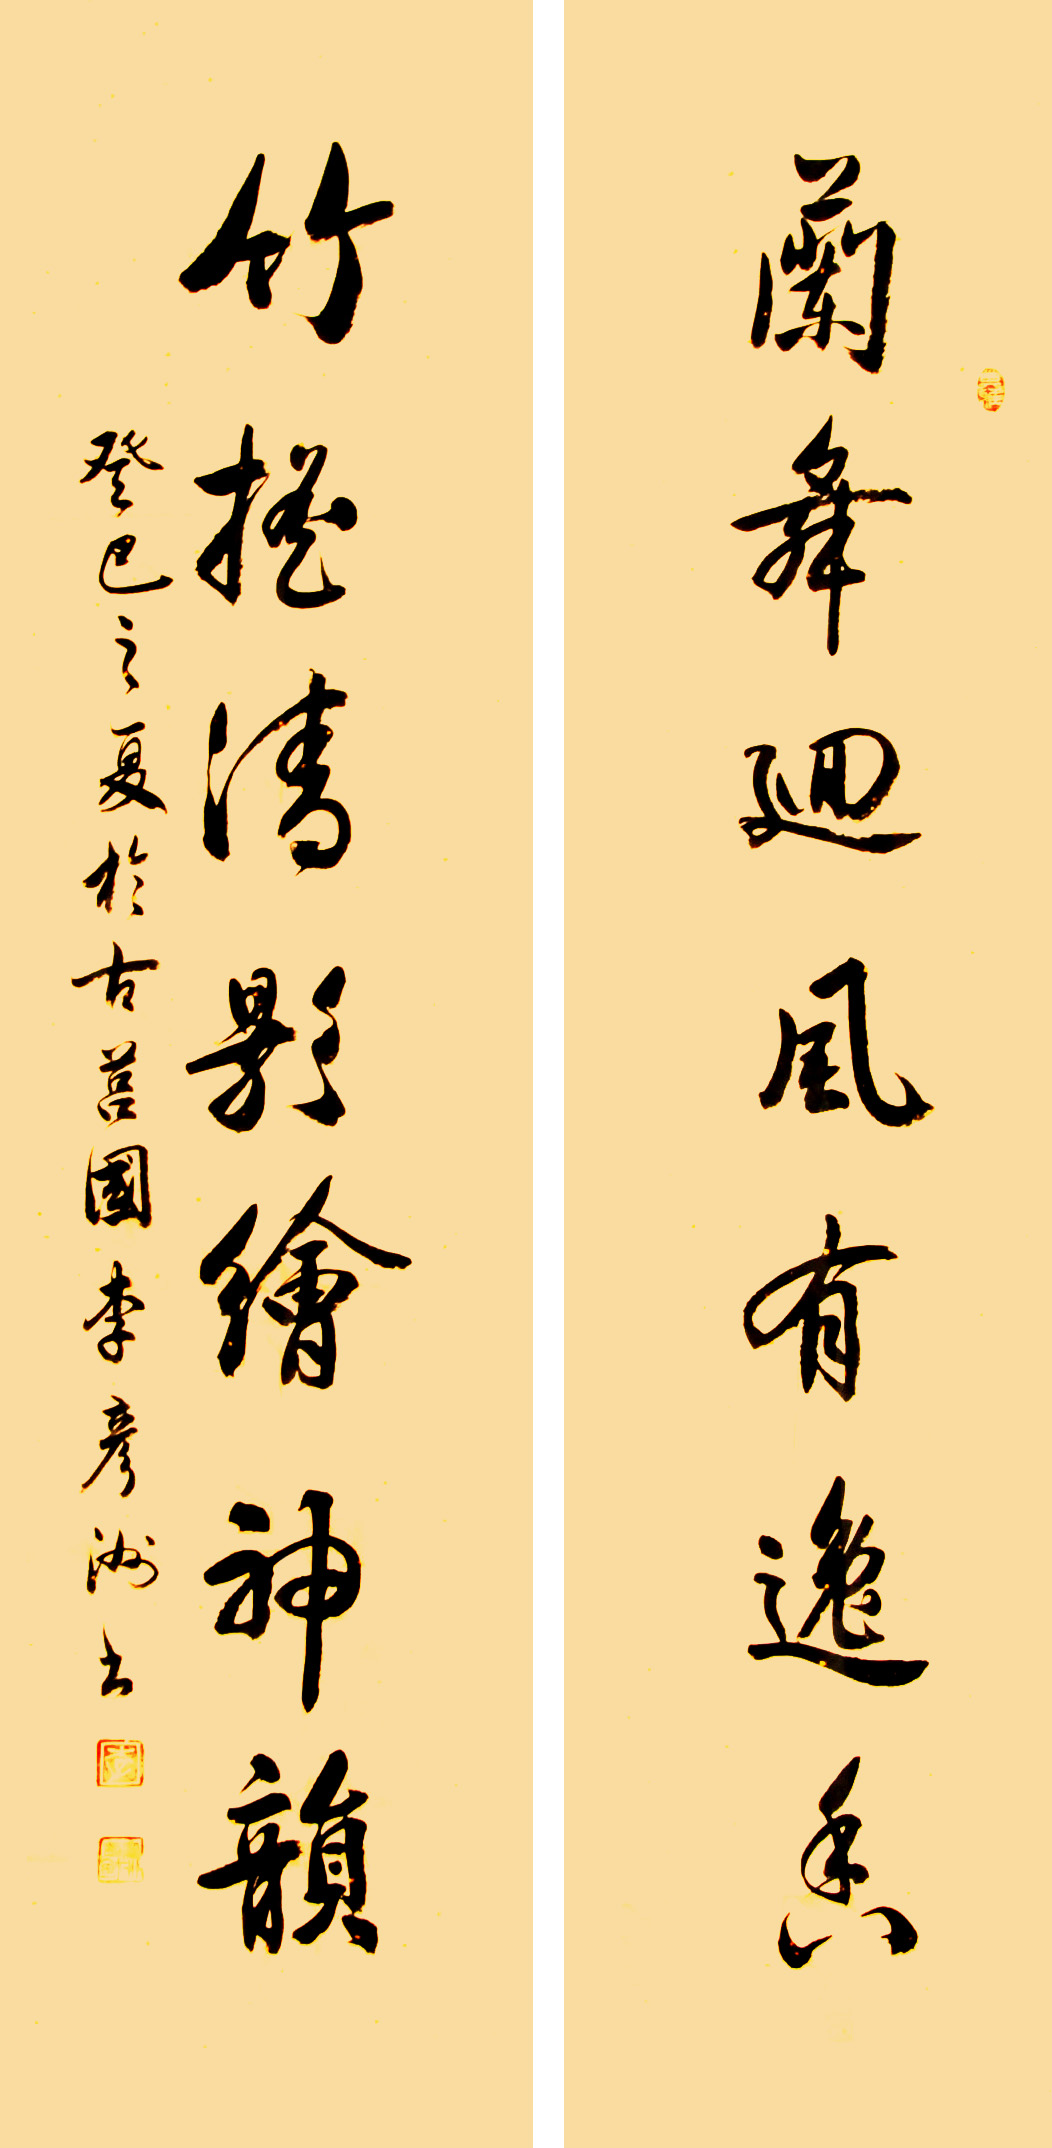 蘭舞迴風有逸香
竹搖清影繪神韻
癸巳之夏於古莒國李彥洲書